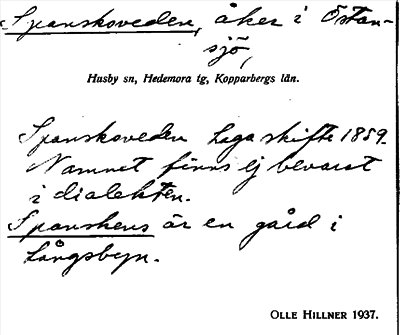 Spanskoveden, åker i Östan-
sjö,
Husby sn, Hedemora tg, Kopparbergs län.
Spanskoveden Laga skifte 1859.
Namnet finns ej bevarat
i dialekten.
Spanskens är en gård i
Långsbyn.
OLLE HILLNER 1937.